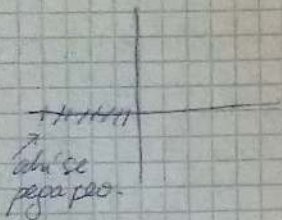 ahí se
pega peo.